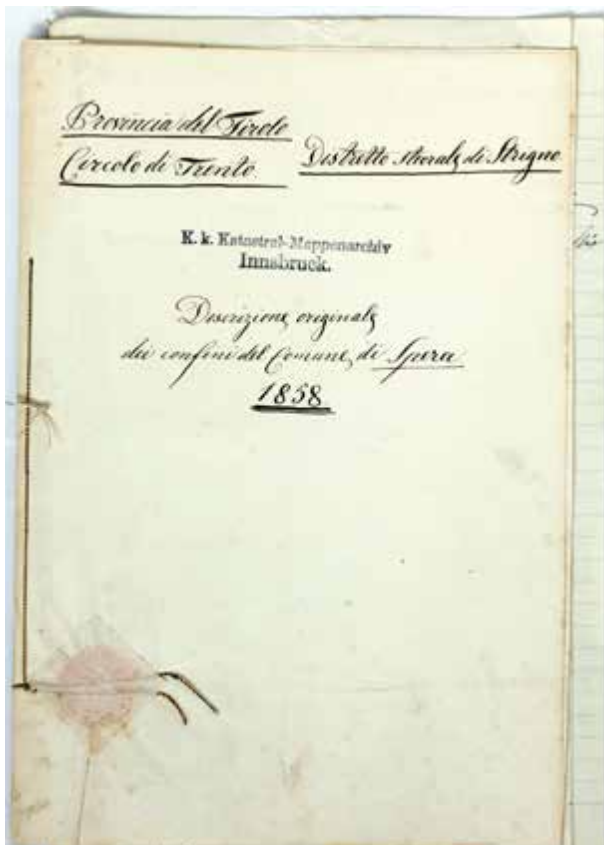 Provincia del Tirolo
Circolo di Trento Distretto steorale di Strigno
K. k. Katastral-Mappenarchiv
Innsbruck.
Descrizione originale
dei confini del Comune di Spera
1858